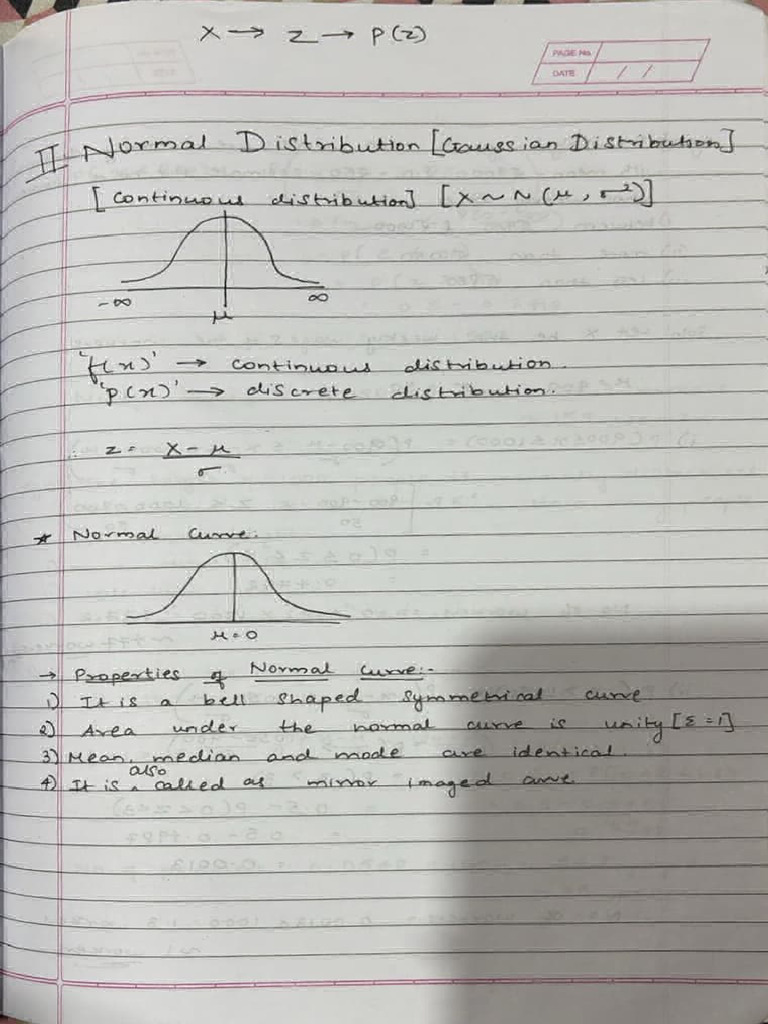 X → Z → P(z)
PAGE No.
DATE / /
II Normal Distribution [Gaussian Distribution]
[continuous distribution] [X ~ N (μ, σ²)]
-∞ ∞
μ
'f(x)' → continuous distribution.
'p(x)' → discrete distribution.
∴ z = X - μ / σ
* Normal curve:
μ = 0
→ Properties of Normal Curve:-
1) It is a bell shaped symmetrical curve
2) Area under the normal curve is unity [Σ = 1]
3) Mean, median and mode are identical.
4) It is also called as mirror imaged curve.